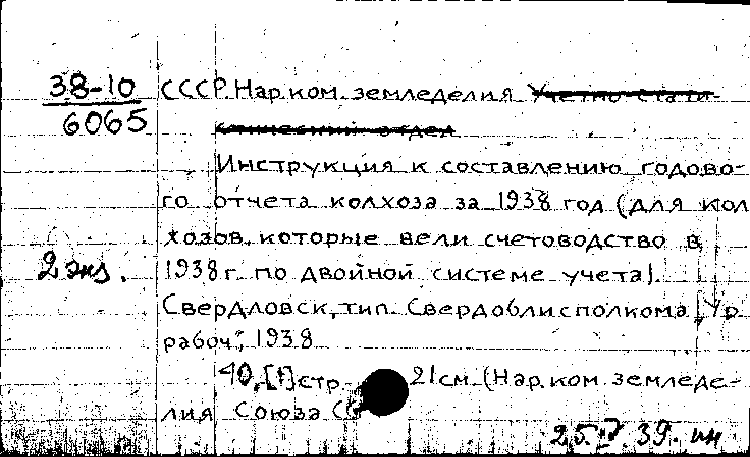 38-10
6065
СССР. Нар. ком. земледелия Учетно-стати
стический отдел
Инструкция к составлению годово-
го отчета колхоза за 1938 год (для кол
хозов, которые вели счетоводство в
2 экз.
1938 г. по двойной системе учета).
Свердловск, тип. Свердоблисполкома „Ур.
рабоч", 1938
40, [1] стр. 21 см. (Нар. ком. земледе-
лия Союза СС
25. IV. 39.